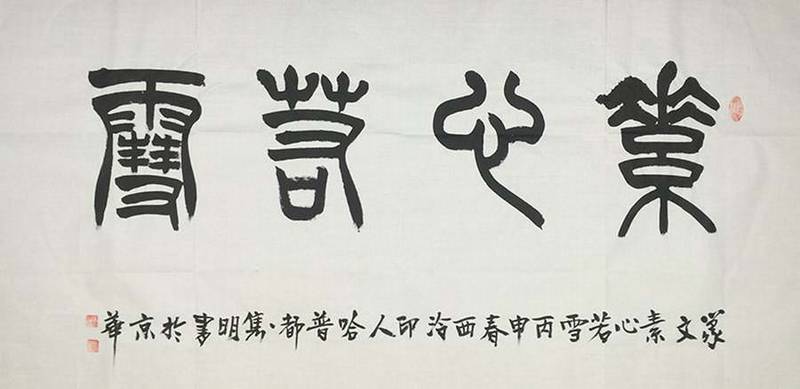 素心若雪
篆文素心若雪丙申春西泠印人哈普都·雋明書於京華